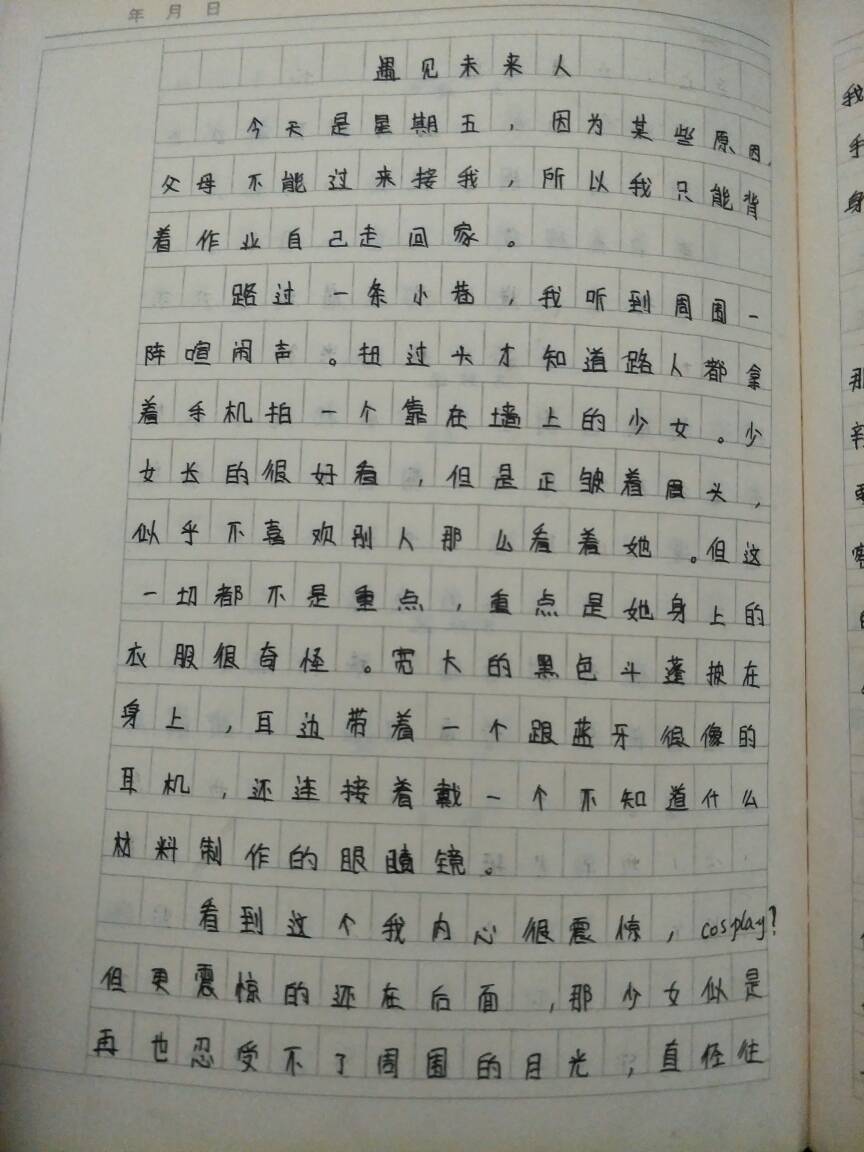 年 月 日
遇见未来人
今天是星期五，因为某些原因，
父母不能过来接我，所以我只能背
着作业自己走回家。
路过一条小巷，我听到周围一
阵喧闹声。扭过头才知道路人都拿
着手机拍一个靠在墙上的少女。少
女长的很好看，但是正皱着眉头，
似乎不喜欢别人那么看着她。但这
一切都不是重点，重点是她身上的
衣服很奇怪。宽大的黑色斗蓬披在
身上，耳边带着一个跟蓝牙很像的
耳机，还连接着戴一个不知道什么
材料制作的眼睛镜。
看到这个我内心很震惊，cosplay？
但更震惊的还在后面，那少女似是
再也忍受不了周围的目光，直径往
我
手
身
那